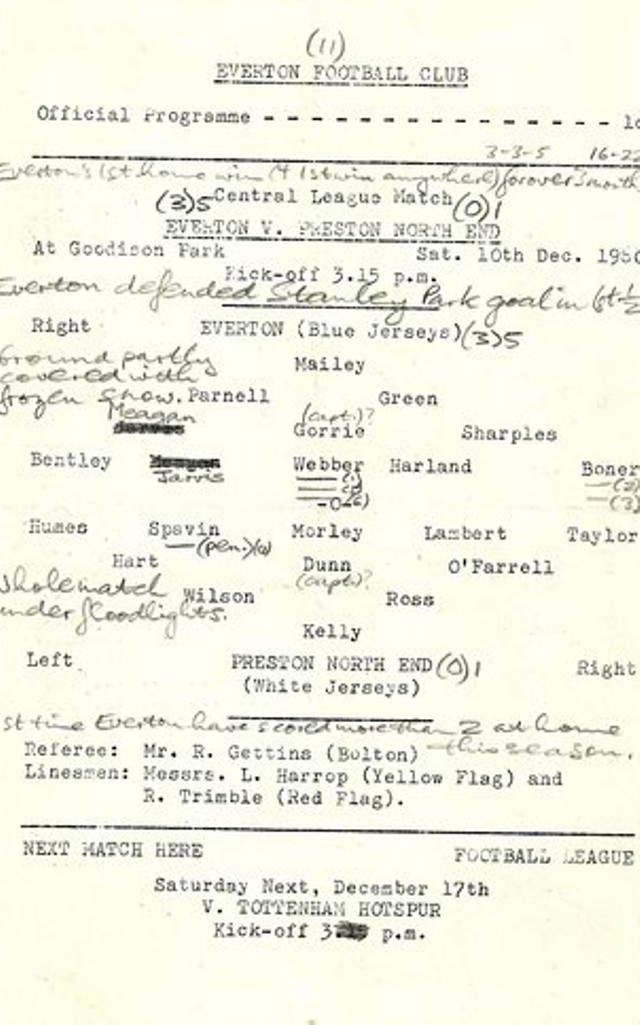 (11)
EVERTON FOOTBALL CLUB
Official Programme - - - - - - - - - - - - - - - - 1d
3-3-5 16-22
Everton's 1st home win (& 1st win anywhere) for over 3 months
(3)5 Central League Match (0)1
EVERTON V. PRESTON NORTH END
At Goodison Park Sat. 10th Dec. 1960
Kick-off 3.15 p.m.
Everton defended Stanley Park goal in 1st ½
Right EVERTON (Blue Jerseys) (3)5
Ground partly
covered with
frozen snow.
Mailey
Parnell Green
Meagan (capt.)?
Gorrie Sharples
Bentley Jarvis Webber Harland Boner
(2)
(3)
Humes Spavin Morley Lambert Taylor
(pen.)
Hart Dunn O'Farrell
(capt.)?
Whole match
under floodlights.
Wilson Ross
Kelly
Left PRESTON NORTH END (0)1 Right
(White Jerseys)
1st time Everton have scored more than 2 at home
this season.
Referee: Mr. R. Gettins (Bolton)
Linesmen: Messrs. L. Harrop (Yellow Flag) and
R. Trimble (Red Flag).
NEXT MATCH HERE FOOTBALL LEAGUE
Saturday Next, December 17th
V. TOTTENHAM HOTSPUR
Kick-off 3. p.m.